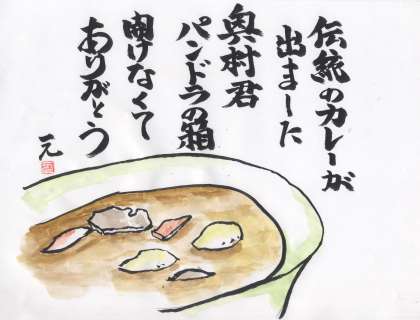 伝統のカレーが
出ました
奥村君
パンドラの箱
開けなくて
ありがとう
一元